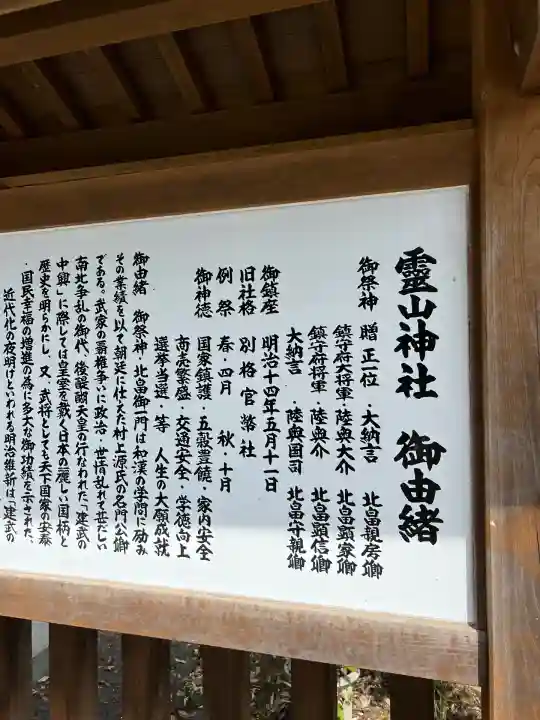 靈山神社 御由緒
御祭神 贈正一位・大納言 北畠親房卿
鎮守府大将軍・陸奥大介 北畠顕家卿
鎮守府将軍・陸奥介 北畠顕信卿
大納言・陸奥国司 北畠守親卿
御鎮座 明治十四年五月十一日
旧社格 別格官幣社
例祭 春・四月 秋・十月
御神徳 国家鎮護・五穀豊饒・家内安全
商売繁盛・交通安全・学徳向上
選挙当選・等 人生の大願成就
御由緒 御祭神・北畠御一門は和漢の学問に励み
その業績を以て朝廷に仕えた村上源氏の名門公卿
である。武家の覇権争いに政治・世情乱れて甚だしい
南北争乱の御代、後醍醐天皇の行なわれた「建武の
中興」に際しては皇室を戴く日本の麗しい国柄と
歴史を明らかにし、又、武将としても天下国家の安泰
・国民幸福の増進の為に多大な御功績を示された。
近代化の夜明けといわれる明治維新は「建武の